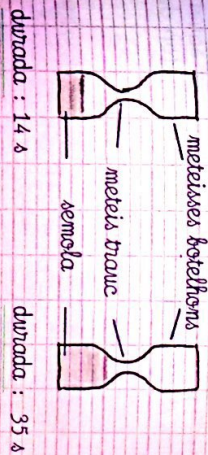 meteisses botelhons
meteis trauc
semola
durada : 14 s
durada : 35 s